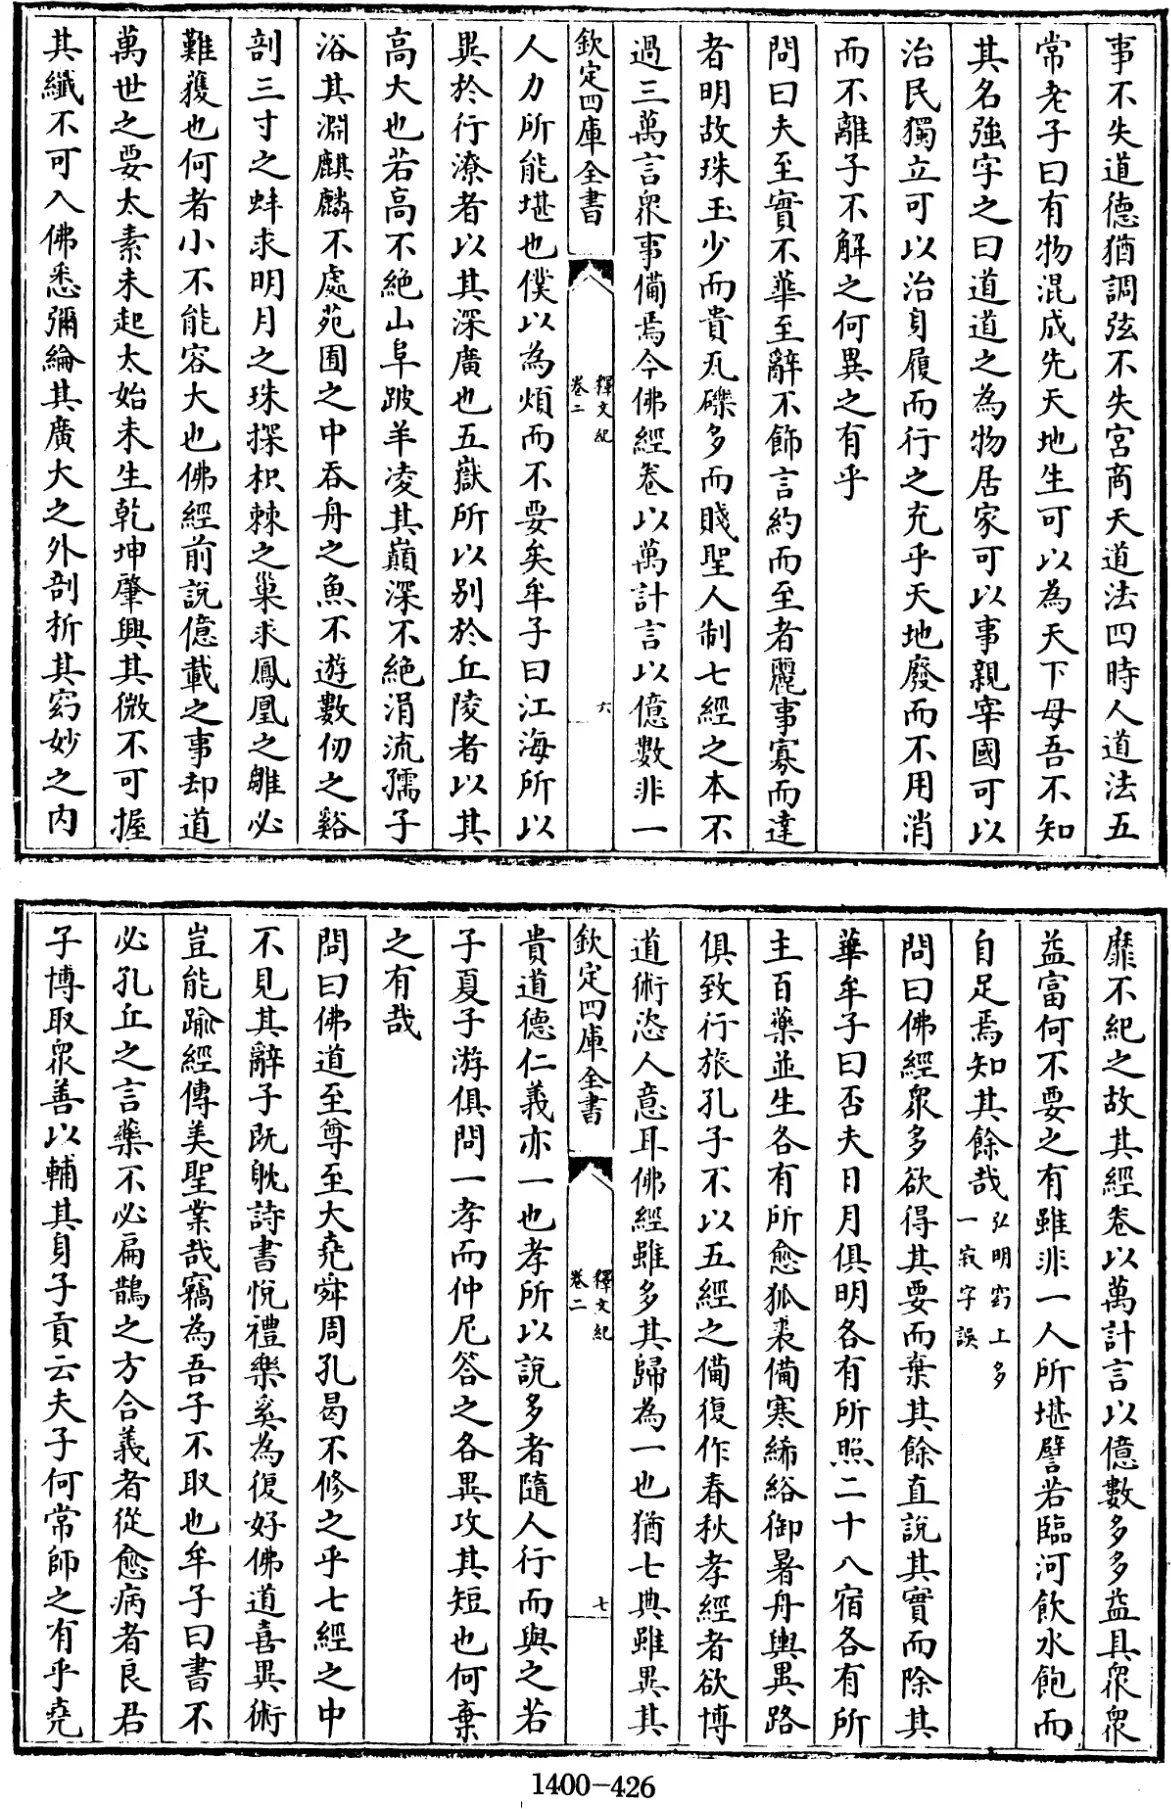 事不失道德猶調弦不失宮商天道法四時人道法五
常老子曰有物混成先天地生可以為天下母吾不知
其名強字之曰道道之為物居家可以事親宰國可以
治民獨立可以治身履而行之充乎天地廢而不用消
而不離子不解之何異之有乎
問曰夫至實不華至辭不飾言約而至者麗事寡而達
者明故珠玉少而貴瓦礫多而賤聖人制七經之本不
過三萬言衆事備焉今佛經卷以萬計言以億數非一
欽定四庫全書
釋文紀
卷二
六
人力所能堪也僕以為煩而不要矣牟子曰江海所以
異於行潦者以其深廣也五嶽所以别於丘陵者以其
高大也若高不絶山阜跛羊凌其巔深不絶涓流孺子
浴其淵麒麟不處苑囿之中吞舟之魚不遊數仞之谿
剖三寸之蚌求明月之珠探枳棘之巢求鳳凰之雛必
難獲也何者小不能容大也佛經前說億載之事却道
萬世之要太素未起太始未生乾坤肇興其微不可握
其纖不可入佛悉彌綸其廣大之外剖析其窈妙之内
靡不紀之故其經卷以萬計言以億數多多益具衆衆
益富何不要之有雖非一人所堪譬若臨河飲水飽而
自足焉知其餘哉
弘明窈上多
一寂字誤
問曰佛經衆多欲得其要而棄其餘直說其實而除其
華牟子曰否夫日月俱明各有所照二十八宿各有所
主百藥並生各有所愈狐裘備寒絺綌御暑舟輿異路
俱致行旅孔子不以五經之備復作春秋孝經者欲博
道術恣人意耳佛經雖多其歸為一也猶七典雖異其
欽定四庫全書
釋文紀
卷二
七
貴道德仁義亦一也孝所以說多者隨人行而與之若
子夏子游俱問一孝而仲尼答之各異攻其短也何棄
之有哉
問曰佛道至尊至大堯舜周孔曷不修之乎七經之中
不見其辭子既躭詩書悅禮樂奚為復好佛道喜異術
豈能踰經傳美聖業哉竊為吾子不取也牟子曰書不
必孔丘之言藥不必扁鵲之方合義者從愈病者良君
子博取衆善以輔其身子貢云夫子何常師之有乎堯
1400-426